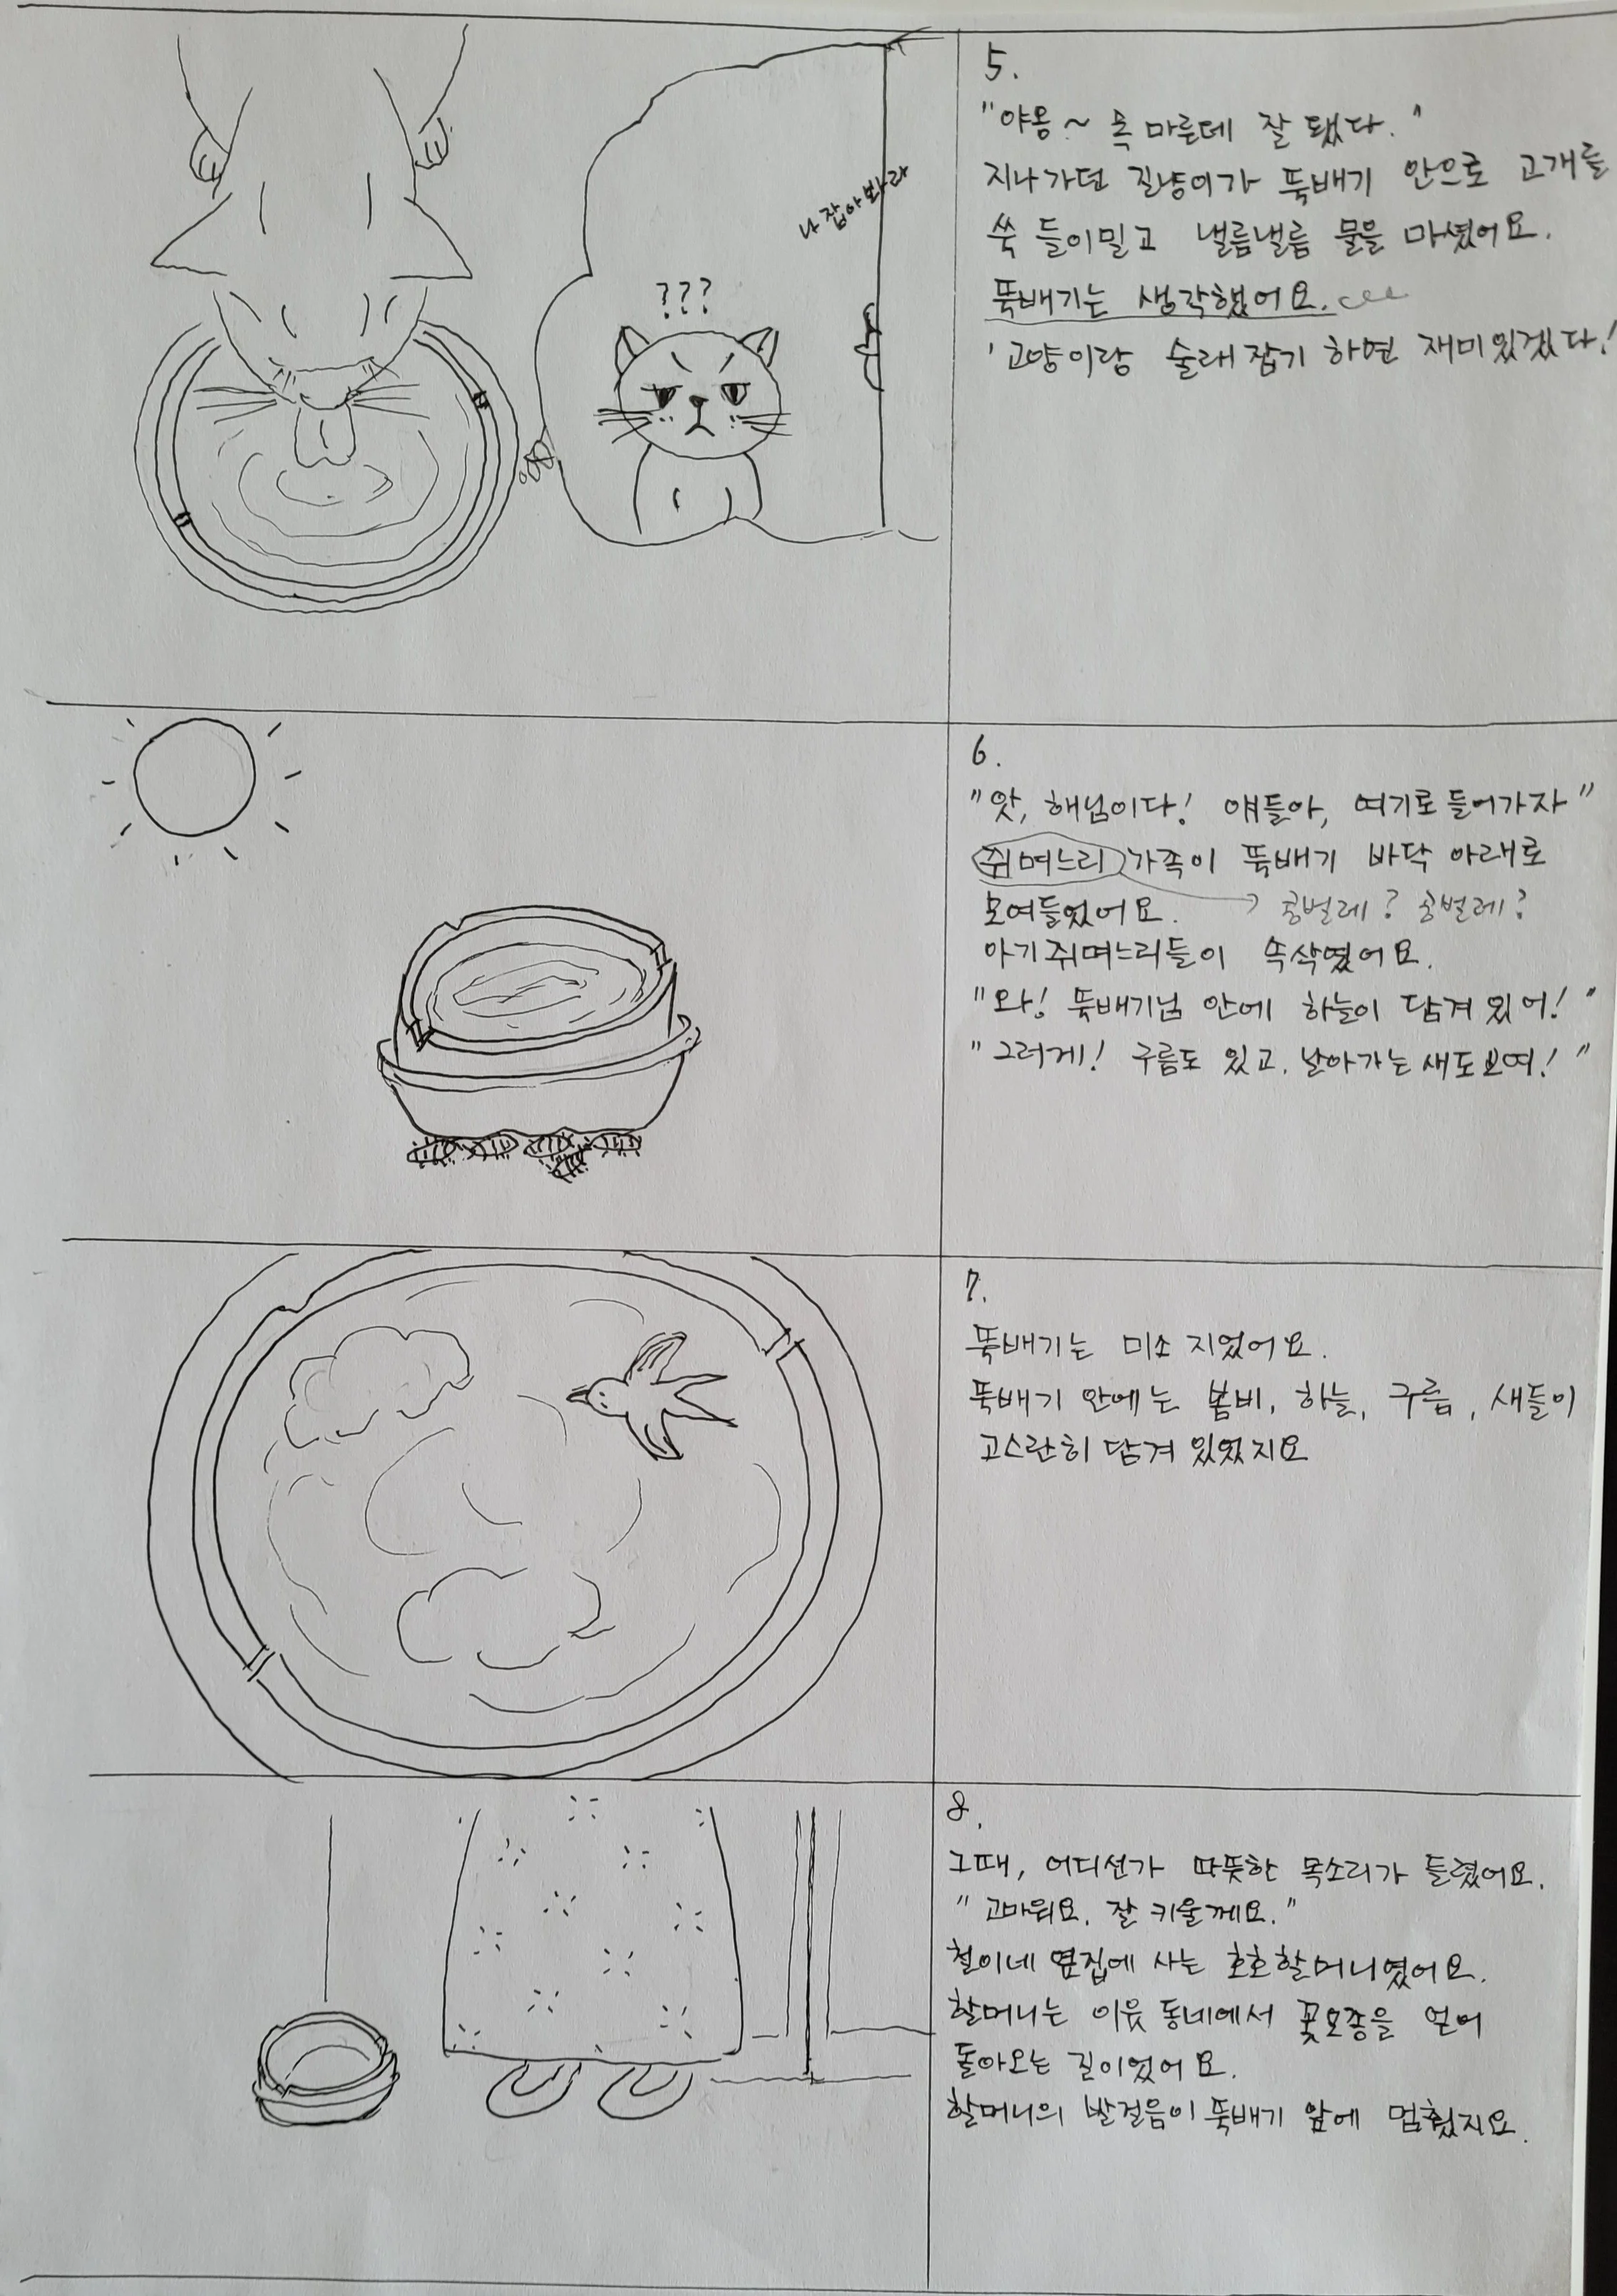 나 잡아봐라
???
5.
"야옹~ 목 마른데 잘 됐다."
지나가던 길냥이가 뚝배기 안으로 고개를
쑥 들이밀고 낼름낼름 물을 마셨어요.
뚝배기는 생각했어요.
'고양이랑 술래잡기 하면 재미있겠다!
6.
"앗, 해님이다! 얘들아, 여기로 들어가자"
쥐며느리 가족이 뚝배기 바닥 아래로
모여들었어요. → 콩벌레? 공벌레?
아기쥐며느리들이 속삭였어요.
"와! 뚝배기님 안에 하늘이 담겨 있어!"
"그러게! 구름도 있고, 날아가는 새도 보여!"
7.
뚝배기는 미소 지었어요.
뚝배기 안에는 봄비, 하늘, 구름, 새들이
고스란히 담겨 있었지요
8.
그때, 어디선가 따뜻한 목소리가 들렸어요.
"고마워요. 잘 키울께요."
철이네 옆집에 사는 호호할머니였어요.
할머니는 이웃 동네에서 꽃모종을 얻어
돌아오는 길이었어요.
할머니의 발걸음이 뚝배기 앞에 멈췄지요.